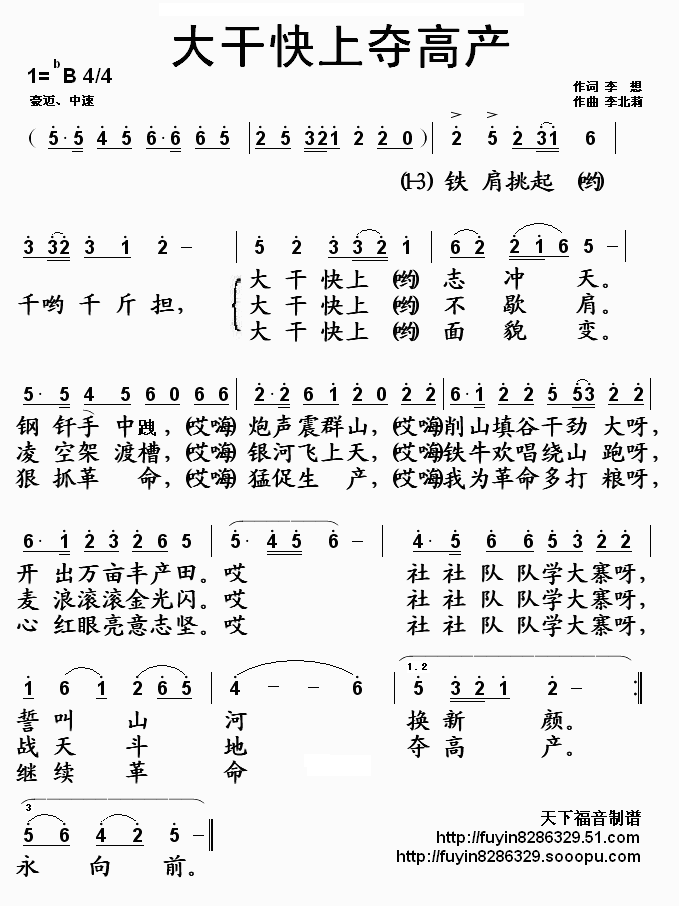 大干快上夺高产
1=ᵇB 4/4
豪迈、中速
作词 李 想
作曲 李北莉
( 5· 5 4 5 6· 6 6 5 | 2 5 321 2 2 0 ) | 2 5 2 31 6
(1-3) 铁 肩挑起 (哟)
3 32 3 1 2 – | 5 2 3 3 2 1 | 6 2 2 1 6 5 –
大 干 快上 (哟) 志 冲 天。
千哟 千 斤 担, 大 干 快上 (哟) 不 歇 肩。
大 干 快上 (哟) 面 貌 变。
5· 5 4 5 6 0 6 6 | 2· 2 6 1 2 0 2 2 | 6· 1 2 2 5 53 2 2
钢 钎手 中践, (哎嗨) 炮声震群山, (哎嗨)削山填谷干劲 大呀,
凌 空架 渡槽, (哎嗨) 银河飞上天, (哎嗨)铁牛欢唱绕山 跑呀,
狠 抓革 命, (哎嗨) 猛促生 产, (哎嗨)我为革命多打 粮呀,
6· 1 2 3 2 6 5 | 5· 4 5 6 – | 4· 5 6 6 5 3 2 2
开 出万亩丰产田。哎 社 社 队 队学大寨呀,
麦 浪滚滚金光闪。哎 社 社 队 队学大寨呀,
心 红眼亮意志坚。哎 社 社 队 队学大寨呀,
1 6 1 2 6 5 | 4 – – 6 | 1.2 5 3 2 1 2 – :||
誓叫 山 河 换新 颜。
战天 斗 地 夺高 产。
继续 革 命
3
5 6 4 2 5 – ||
永 向 前。
天下福音制谱
http://fuyin8286329.51.com
http://fuyin8286329.sooopu.com